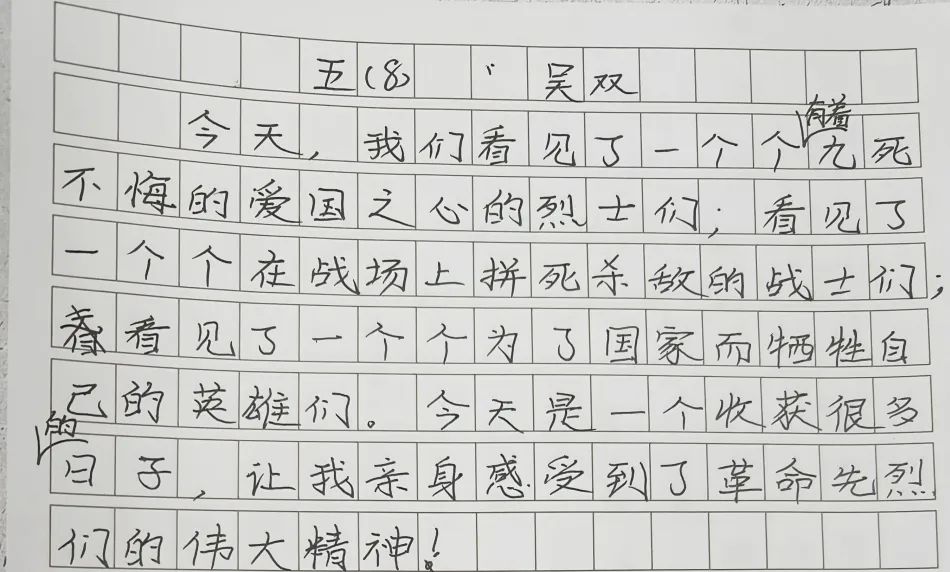 五(8) 吴双
今天，我们看见了一个个有着九死
不悔的爱国之心的烈士们；看见了
一个个在战场上拼死杀敌的战士们；
看见了一个个为了国家而牺牲自
己的英雄们。今天是一个收获很多
的日子，让我亲身感受到了革命先烈
们的伟大精神！